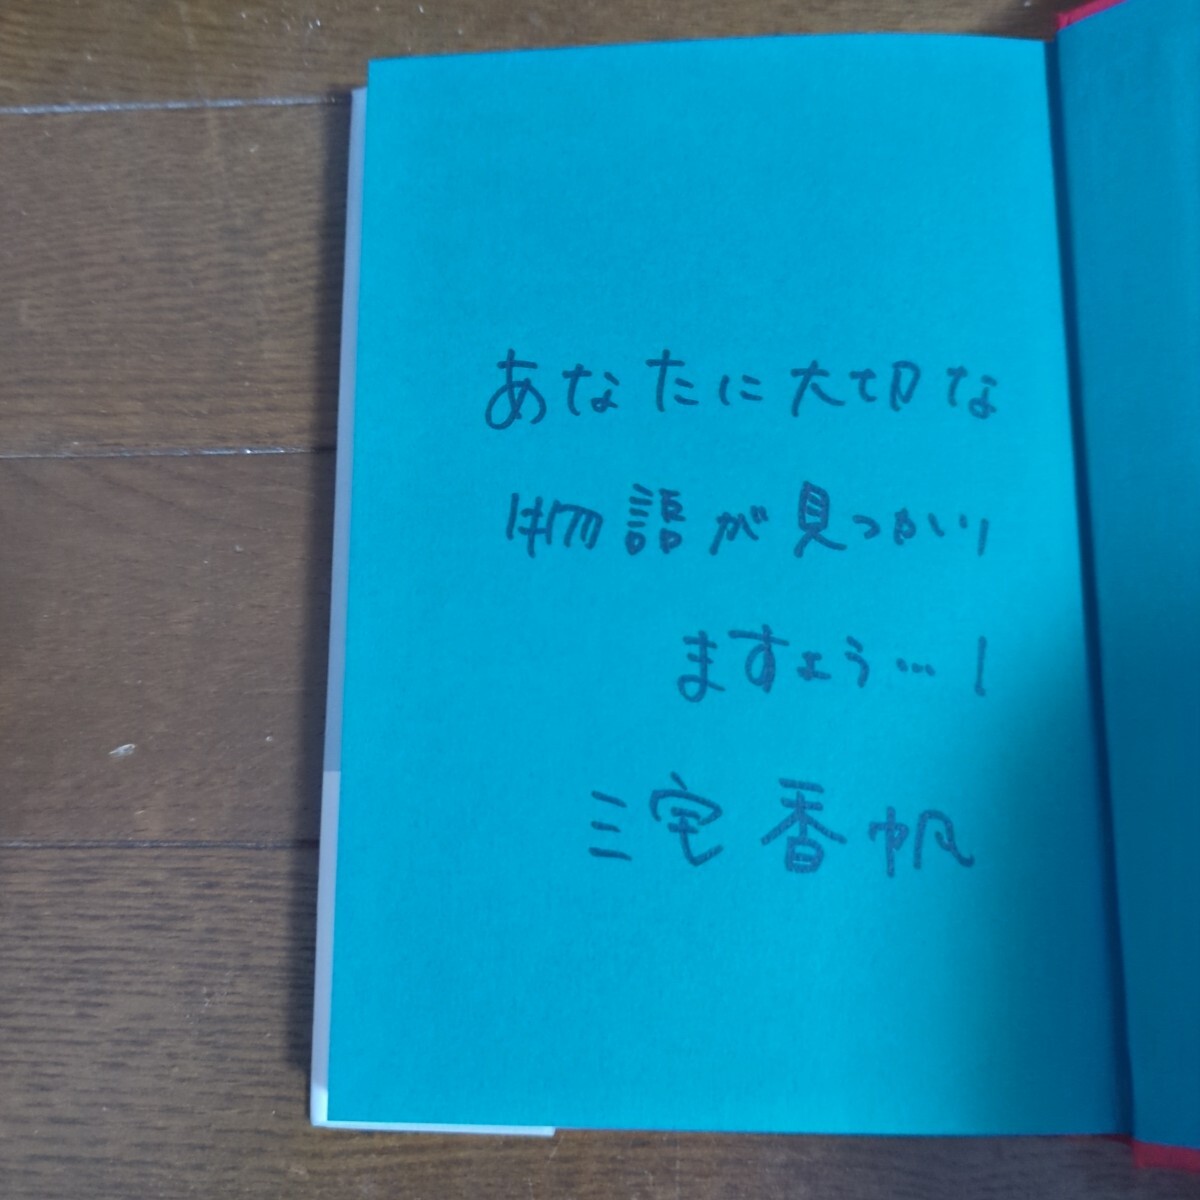 あなたに大切な
物語が見つかり
ますよう…!
三宅香帆